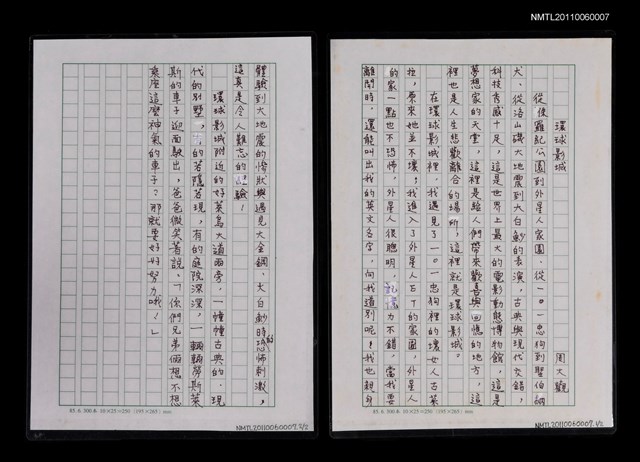 NMTL20110060007
環球影城
周大觀
從侏羅紀公園到外星人家園、從一○一忠狗到聖伯納
犬、從洛山磯大地震到大白鯊的表演，古典與現代交錯，
科技秀感十足，這是世界上最大的電影動態博物館，這是
夢想家的天堂，這裡是給人們帶來歡喜與回憶的地方，這
裡也是人生悲歡離合的場所，這裡就是環球影城。
在環球影城裡，我遇見了一○一忠狗裡的壞女人古萊
拉，原來她並不壞；我進入了外星人ET的家園，外星人
的家一點也不恐怖，外星人很聰明，記憶力不錯，當我要
離開時，還能叫出我的英文名字，向我道別呢！我也親身
85.6.300本 10×25=250 (195×265) mm
NMTL20110060007.1/2
體驗到大地震的慘狀與遇見大金鋼、大白鯊時的恐怖刺激，
這真是令人難忘的經驗！
環球影城附近的好萊塢大道兩旁，一幢幢古典的、現
代的別墅，有的若隱若現，有的庭院深深，一輛輛勞斯萊
斯的車子迎面駛出，爸爸微笑著說：「你們兄弟倆想不想
乘座這麼神氣的車子？那就要好好努力哦！」
85.6.300本 10×25=250 (195×265) mm
NMTL20110060007.2/2